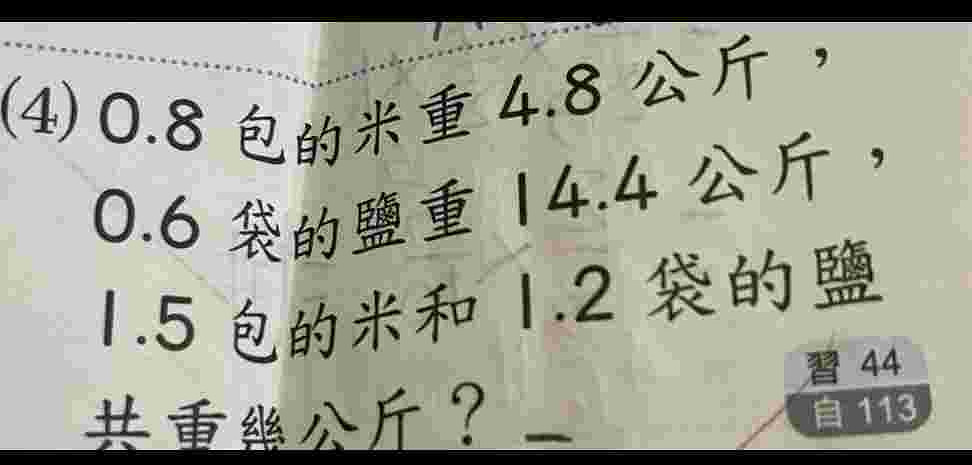 (4) 0.8 包的米重 4.8 公斤，
0.6 袋的鹽重 14.4 公斤，
1.5 包的米和 1.2 袋的鹽
共重幾公斤？
習 44
自 113